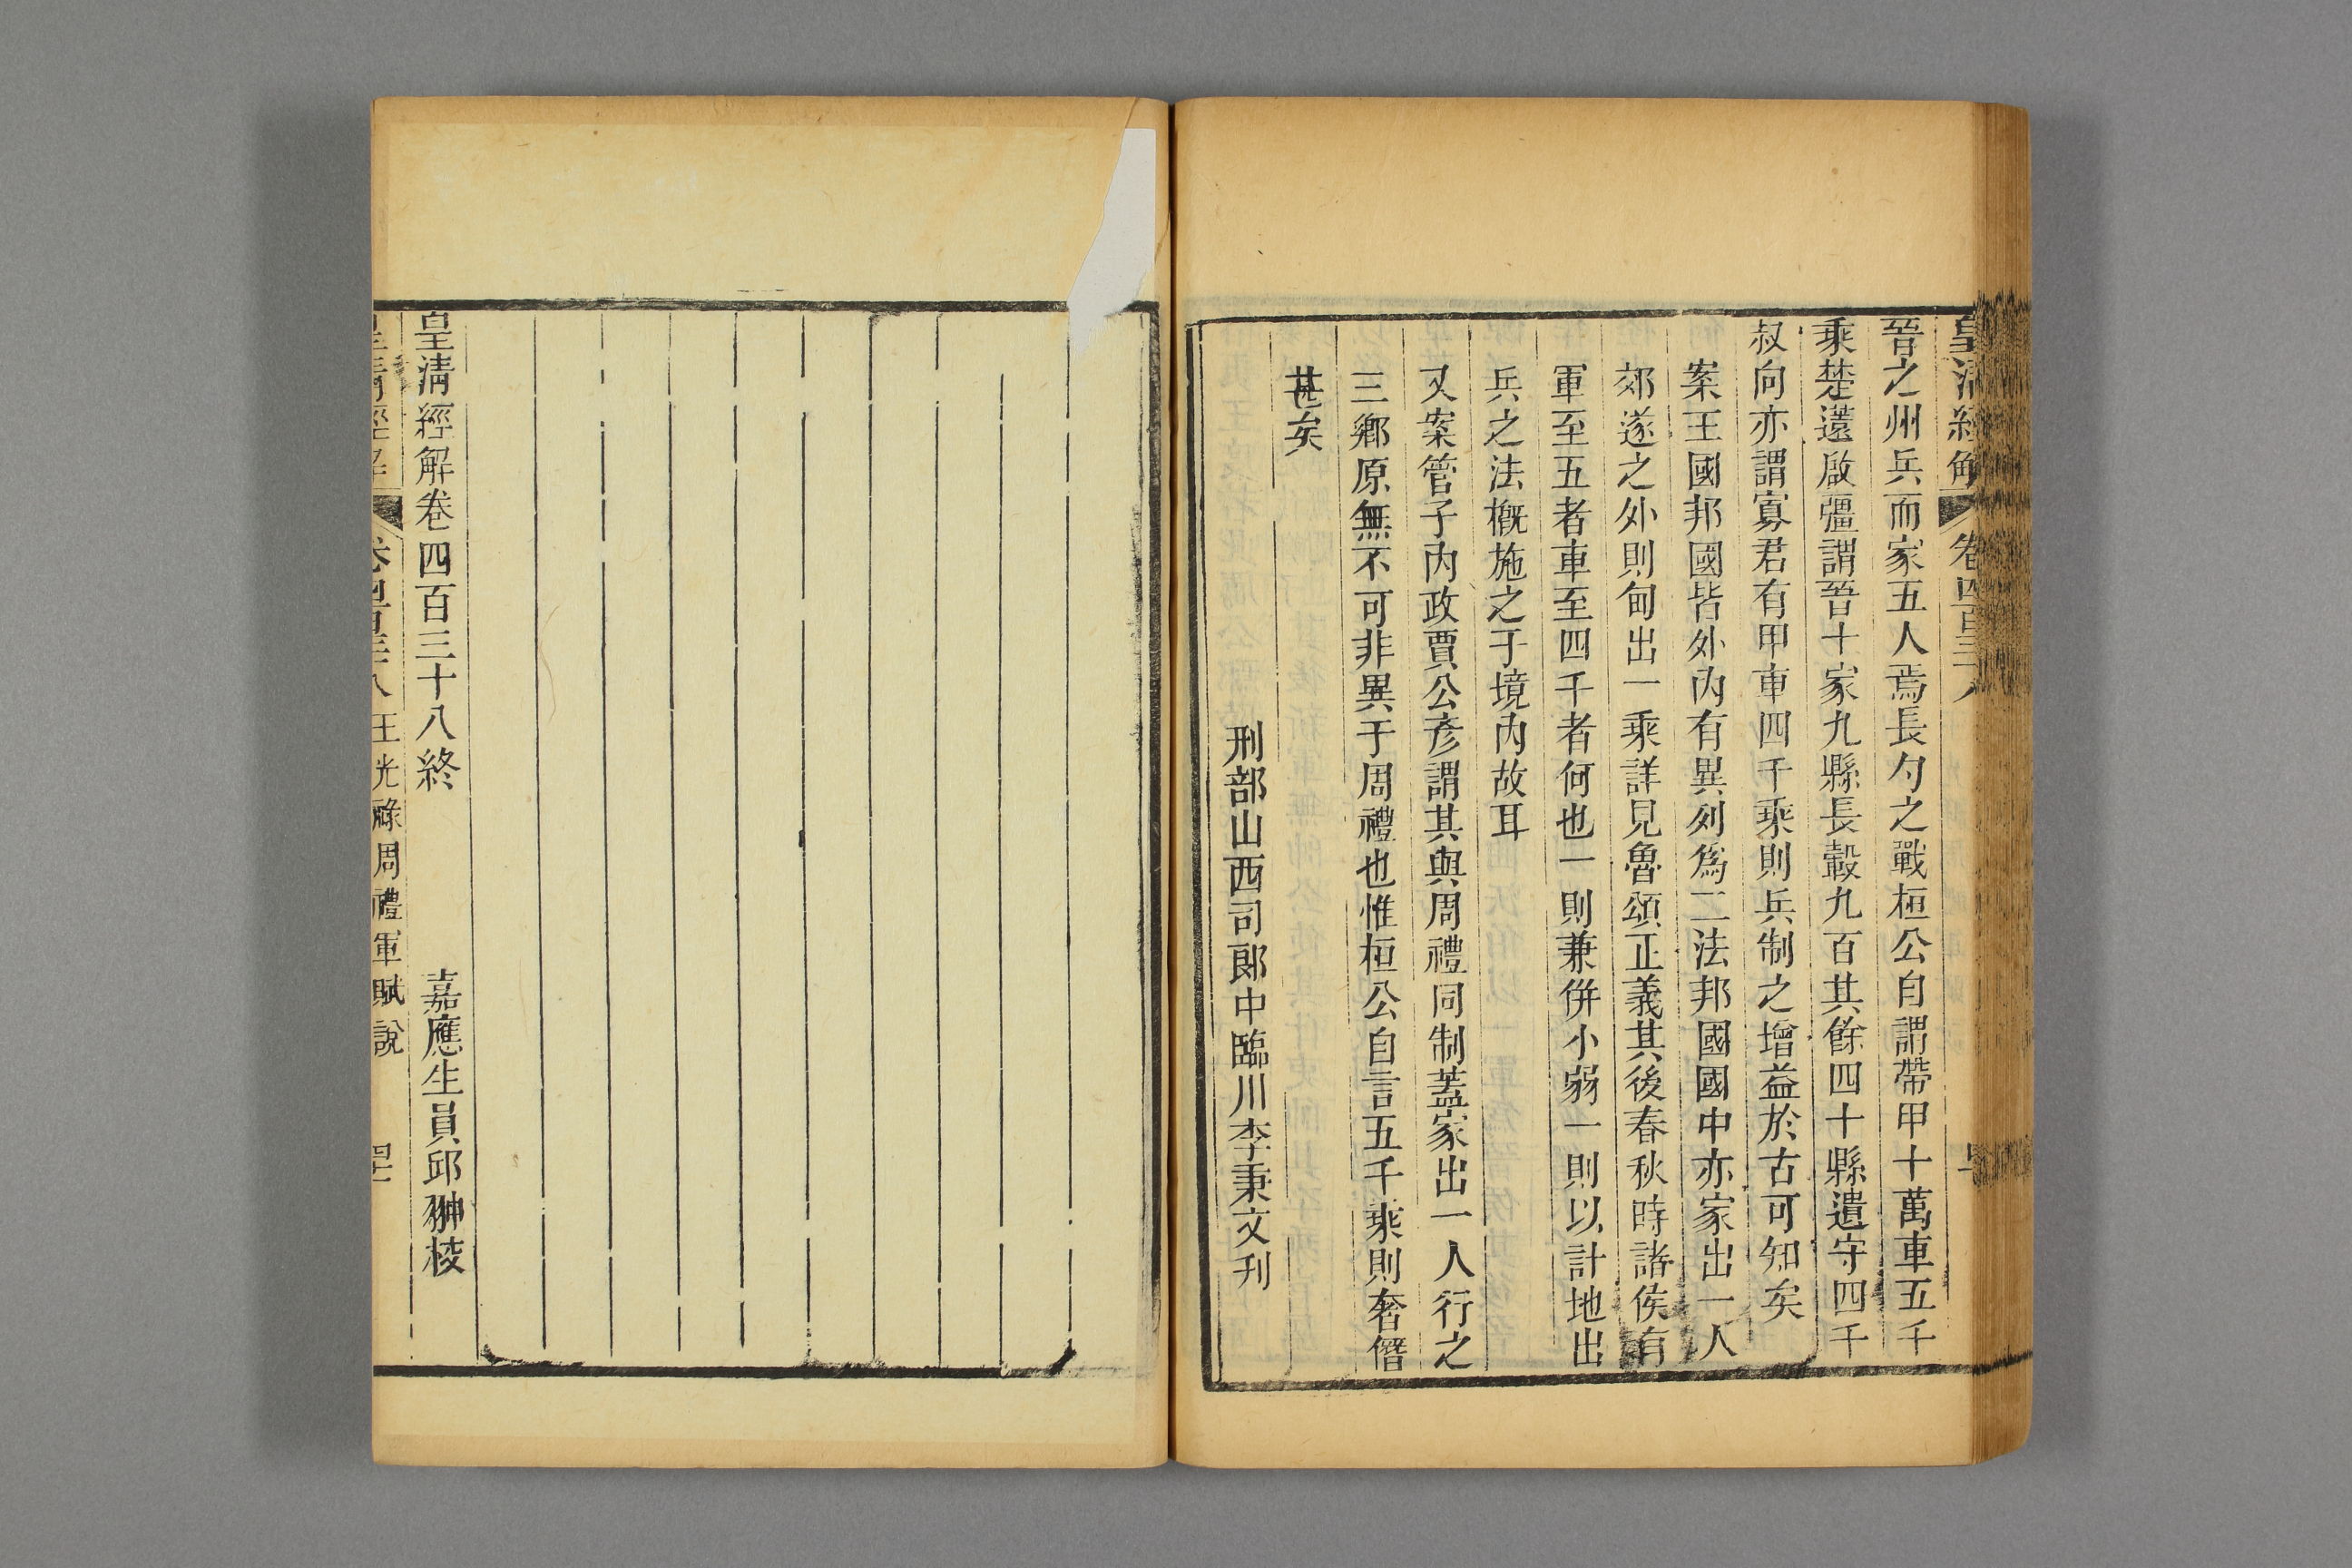 皇清經解 卷四百三十八
晉之州兵而家五人焉長勺之戰桓公自謂帶甲十萬車五千
乘楚薳啟彊謂晉十家九縣長轂九百其餘四十縣遺守四千
叔向亦謂寡君有甲車四千乘則兵制之增益於古可知矣
案王國邦國皆外內有異列為二法邦國國中亦家出一人
郊遂之外則甸出一乘詳見魯頌正義其後春秋時諸侯有
軍至五者車至四千者何也一則兼併小弱一則以計地出
兵之法概施之于境內故耳
又案管子內政賈公彥謂其與周禮同制蓋家出一人行之
三鄉原無不可非異于周禮也惟桓公自言五千乘則奢僭
甚矣
刑部山西司郎中臨川李秉文刊
皇清經解卷四百三十八終 嘉應生員邱翀校
皇清經解 卷四百三十八 王光祿周禮軍賦說